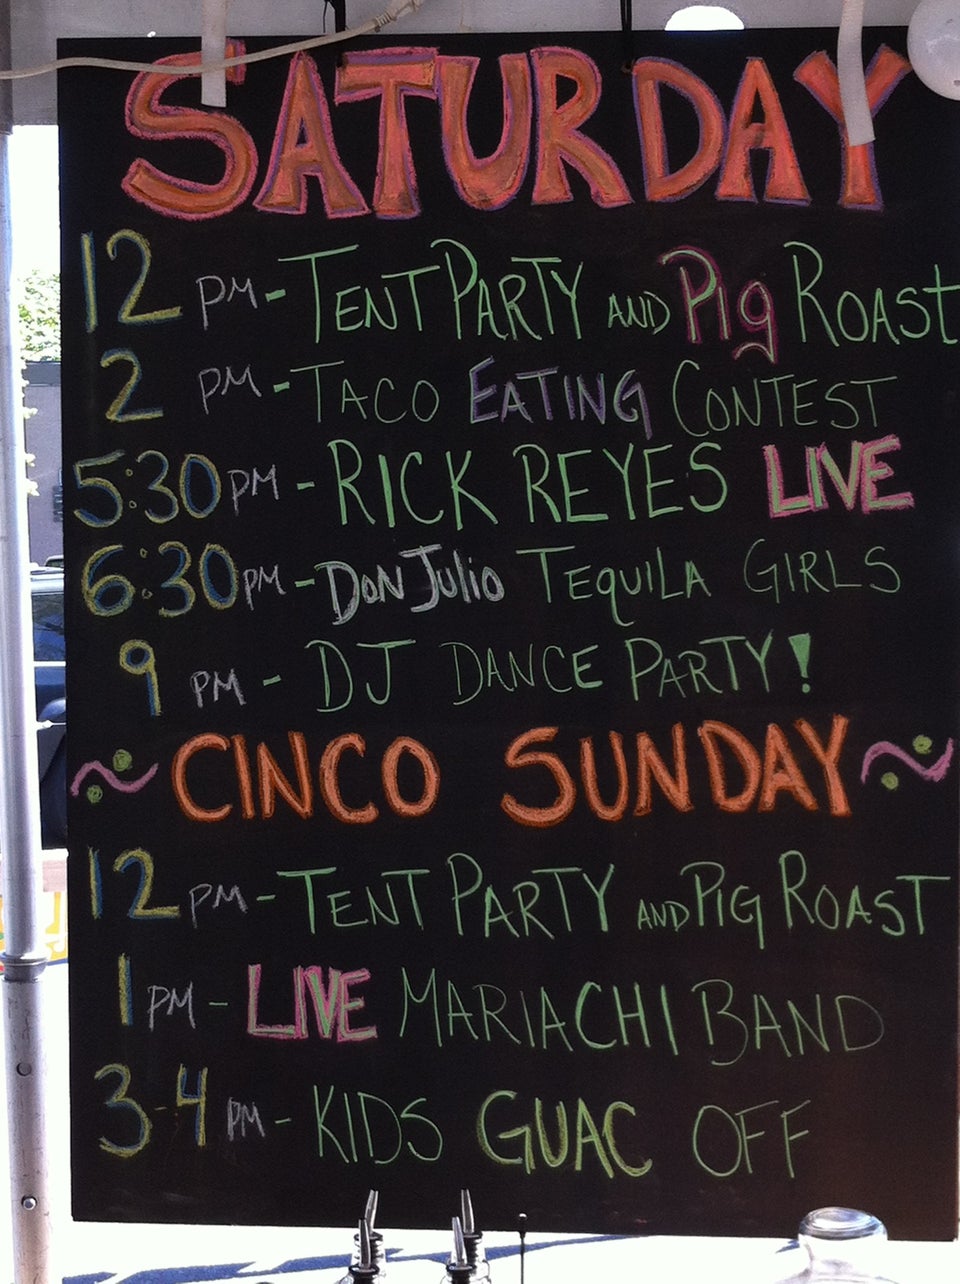 SATURDAY
12 PM - TENT PARTY AND PIg ROAST
2 PM - TACO EATING CONTEST
5:30 PM - RICK REYES LIVE
6:30 PM - DON JuLio TEquiLA GIRLS
9 PM - DJ DANCE PARTY!
~ CINCO SUNDAY ~
12 PM - TENT PARTY AND PIG ROAST
1 PM - LIVE MARIACHI BAND
3-4 PM - KIDS GUAC OFF